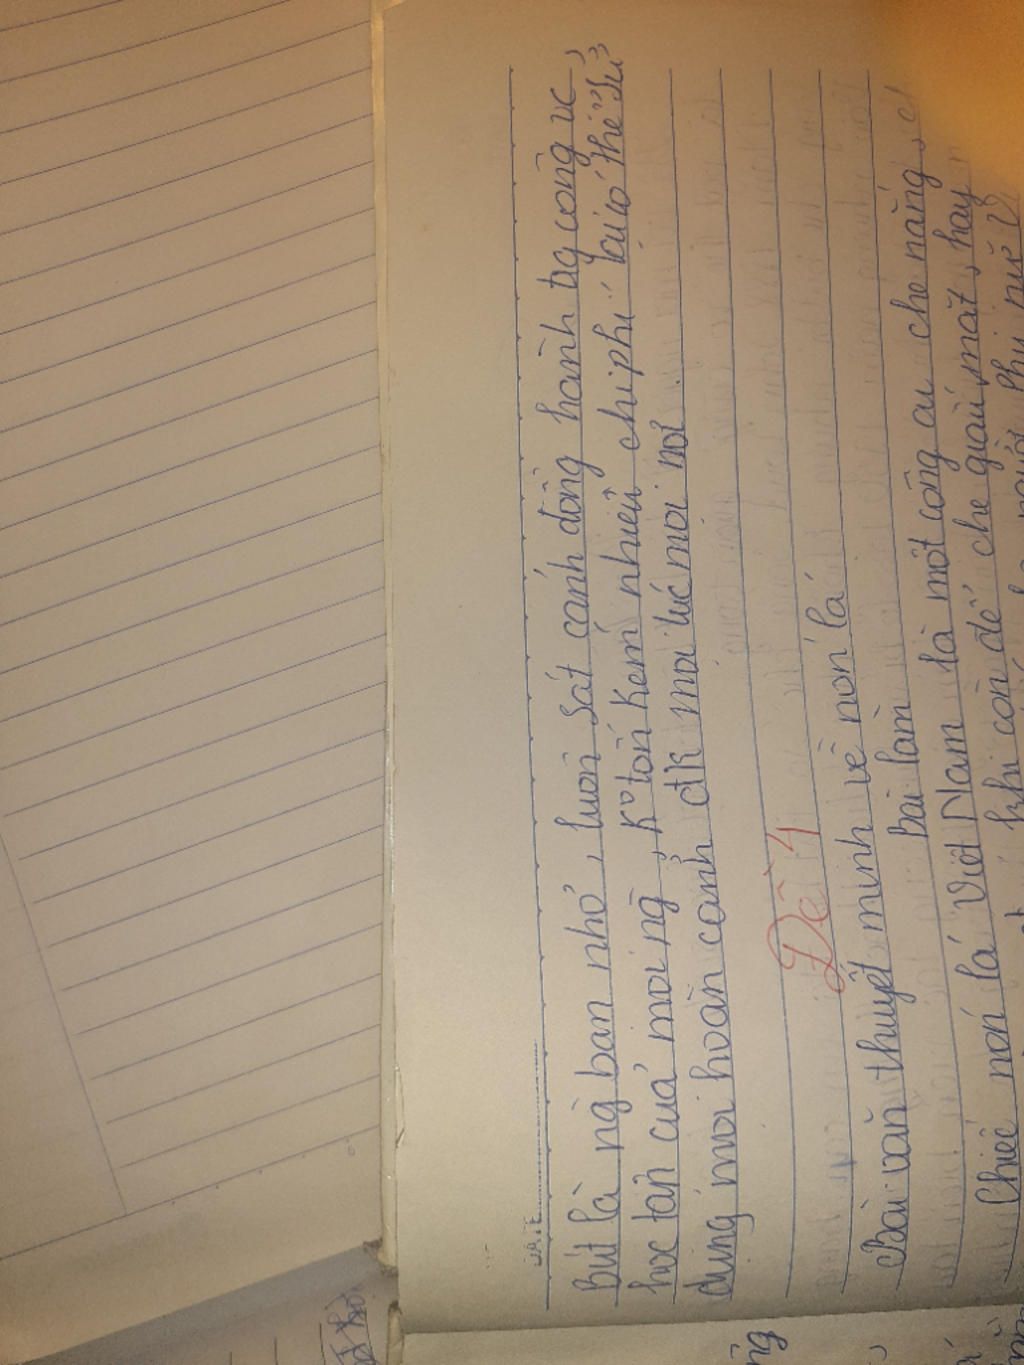 DATE
Bút là ng̀ bạn nhỏ, luôn sát cánh đồng hành tr̀g công vc,
học tập của mọi ng̀, k° tốn kém nhiều chi phí bút có thể sử
dụng mọi hoàn cảnh đk mọi lúc mọi nơi
Đề 4
Bài văn thuyết minh về nón lá
Bài làm
Chiếc nón lá Việt Nam là một công cụ che nắng,
khi còn để che giấu mặt, hay
người phụ nữ